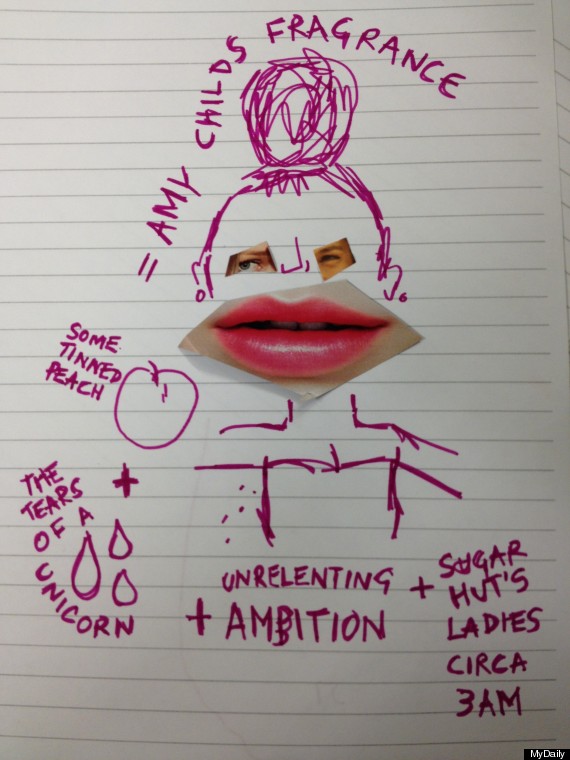 = AMY CHILDS FRAGRANCE
SOME
TINNED
PEACH
+
THE
TEARS
OF A
UNICORN
+ UNRELENTING
AMBITION
+ SUGAR
HUT'S
LADIES
CIRCA
3AM
MyDaily